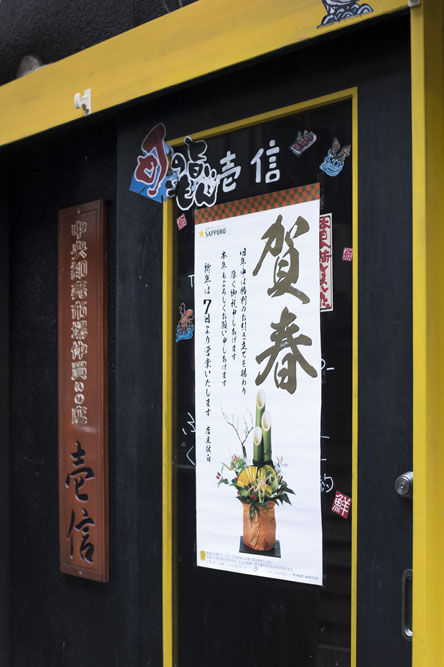 旬
壱信
SAPPORO
賀春
旧年中は格別のお引き立てを賜わり
厚く御礼申しあげます
本年もよろしくお願い申しあげます
新年は7日より営業いたします
店主敬白
中央卸売市場仲買いの店
壱信
鮮